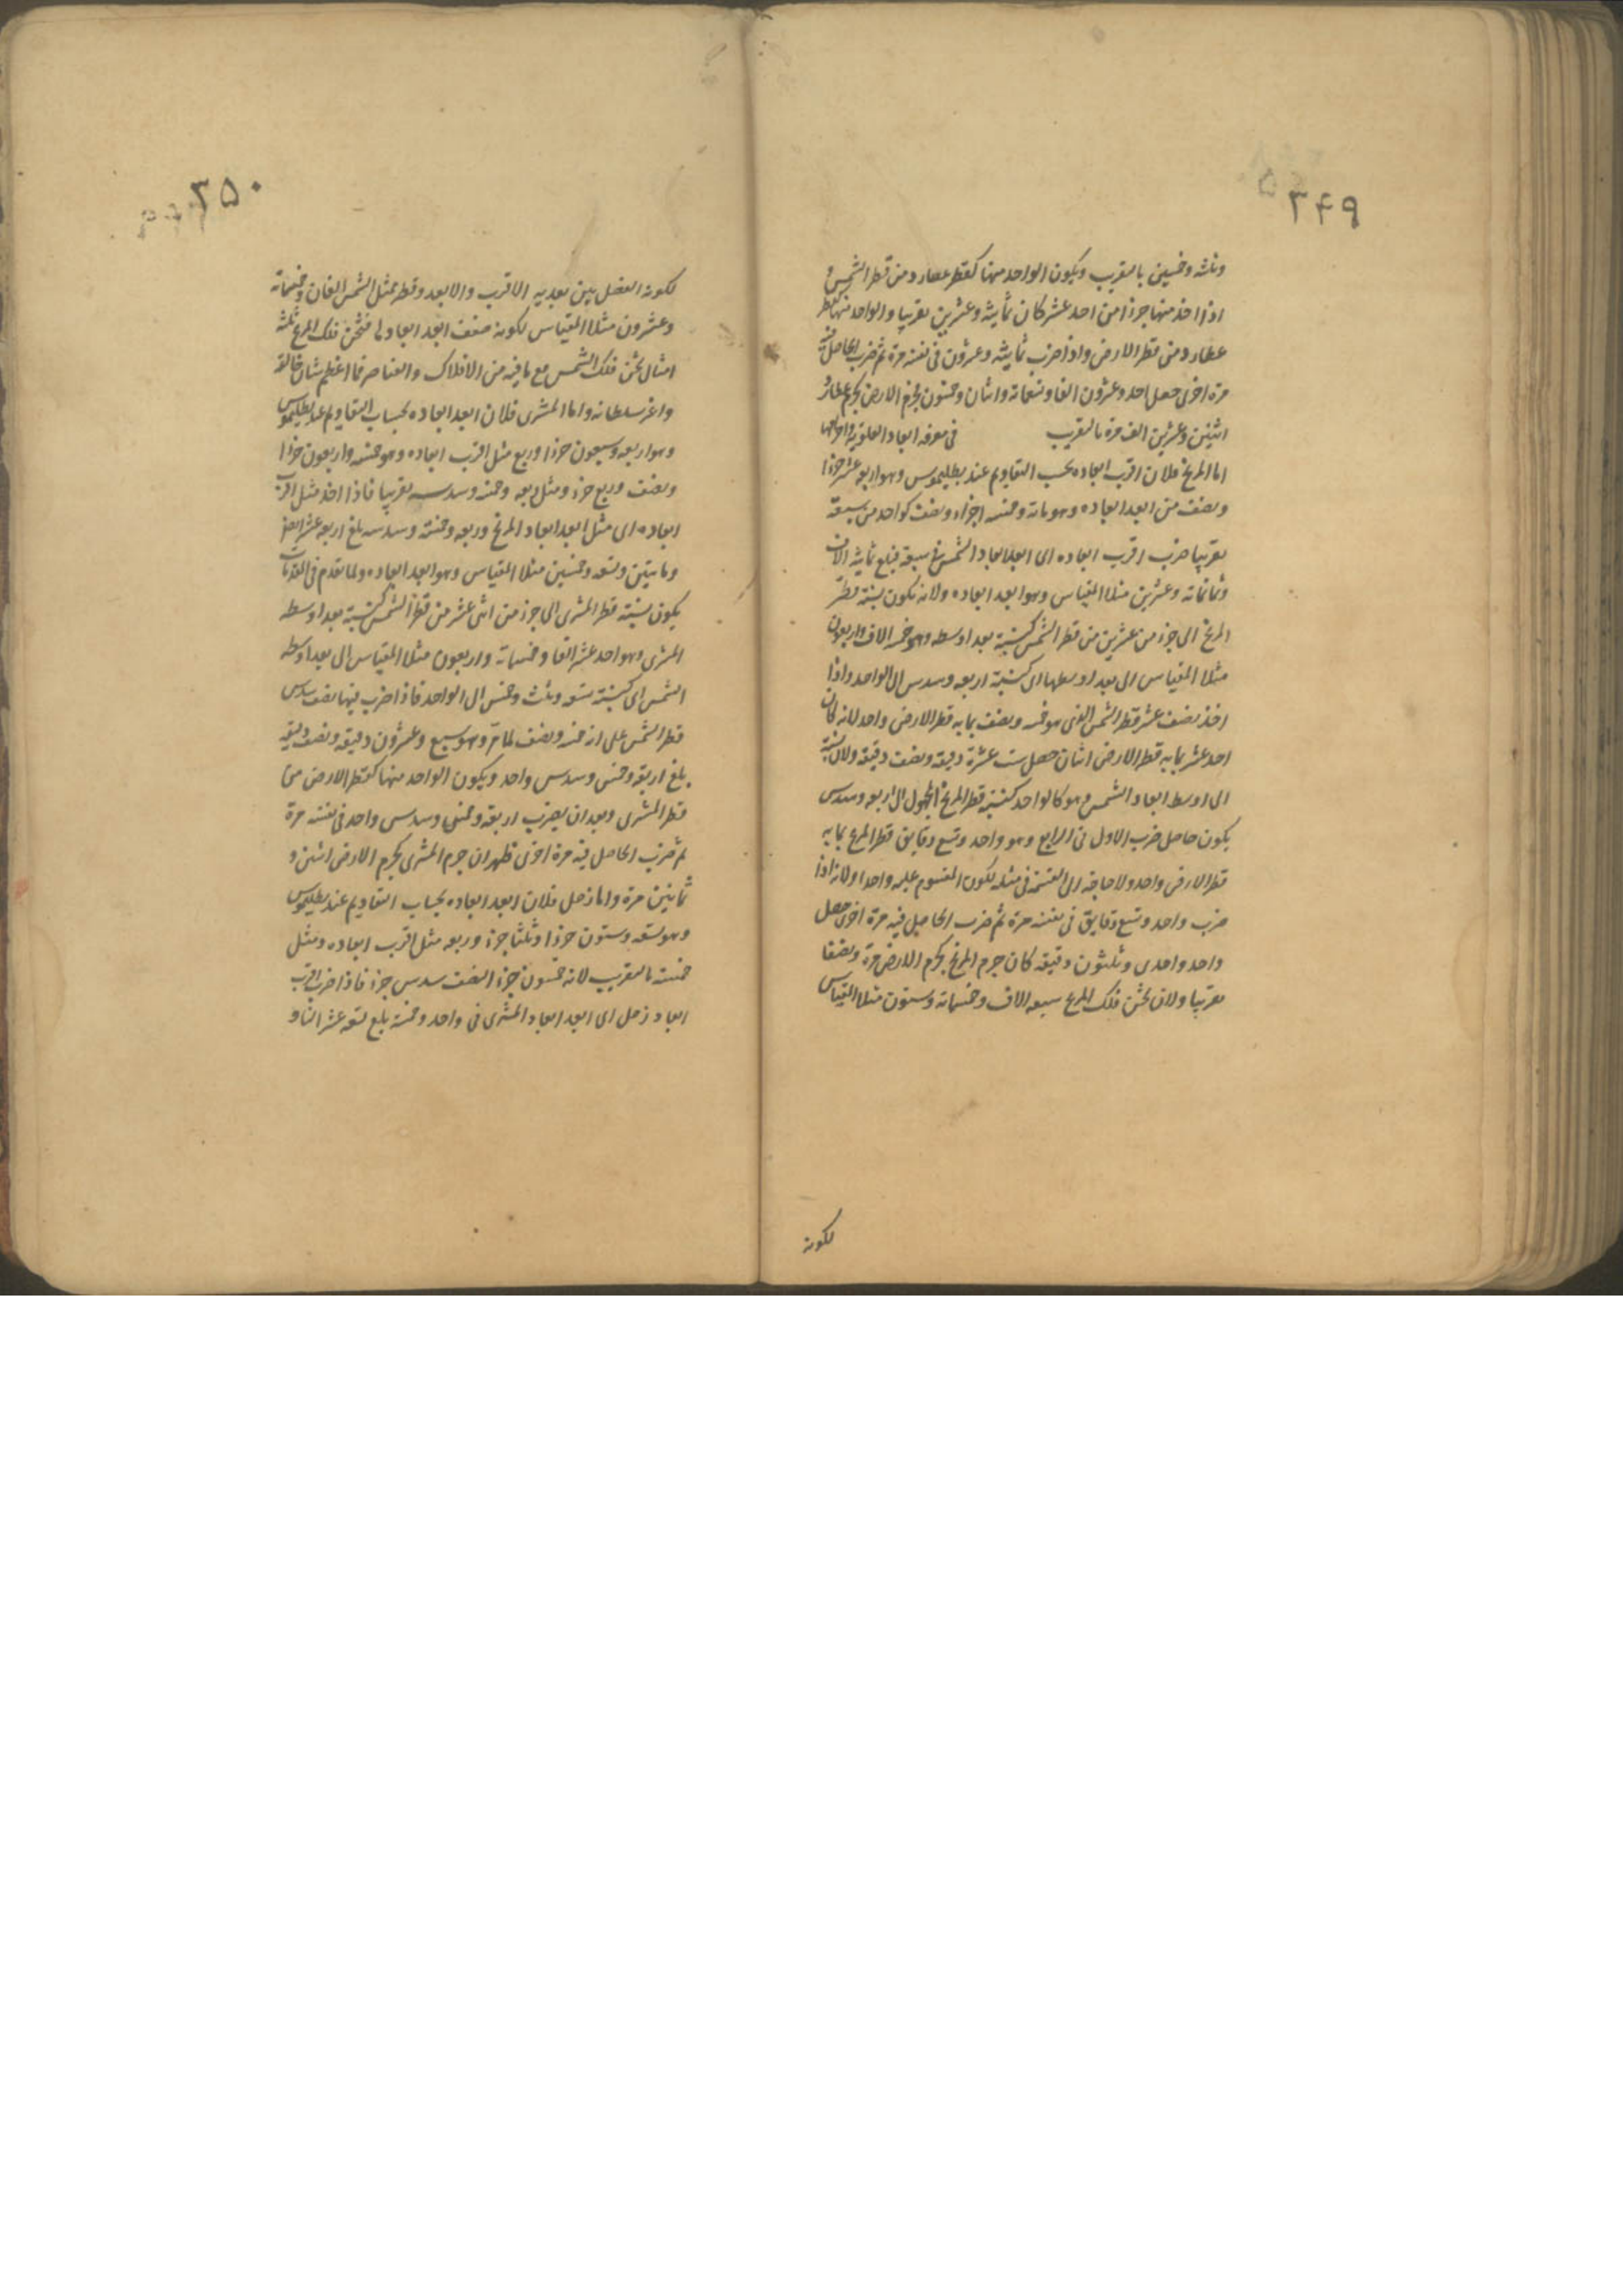 ۳۴۹
وثلثه وخمسين بالتقريب ويكون الواحد منها كقطر عطارد ومن قطر الشمس و
اذا اخذ منها جزءا من احد عشر كان ثمانية وعشرين تقريبا والواحد منها كقطر
عطارد ومن قطر الارض واذا ضرب ثمانية وعشرون فى نفسه مرة ثم ضرب الحاصل فيه
مرة اخرى حصل احد وعشرون الفا وتسعمائة واثنان وخمسون فجرم الارض كجرم عطارد
اثنين وعشرين الف مرة بالتقريب فى معرفه ابعاد العلوية واجرامها
اما المريخ فلان اقرب ابعاده بحسب التقاويم عند بطليموس وهو اربعه عشر جزءا
ونصف من ابعد ابعاده وهو مائة وخمسه اجزاء ونصف كواحد من سبعة
تقريبا ضرب اقرب ابعاده اى ابعد ابعاد الشمس فى سبعة فبلغ ثمانية الاف
وثمانمائة وعشرين مثلا للمقياس وهو ابعد ابعاده ولانه تكون نسبة قطر
المريخ الى جزء من عشرين من قطر الشمس كنسبة بعد اوسطه وهو خمسه الاف واربعون
مثلا للمقياس الى بعد اوسطها اى كنسبة اربعه وسدس الى الواحد واذا
اخذ نصف عشر قطر الشمس الذى هو خمسه ونصف بما به قطر الارض واحد لانه كان
احد عشر بما به قطر الارض اثنان حصل ست عشرة دقيقه ونصف دقيقه ولان نسبة
الى اوسط ابعاد الشمس وهو كالواحد كنسبة قطر المريخ المجهول الى اربعه وسدس
يكون حاصل ضرب الاول فى الرابع وهو واحد وتسع دقايق قطر المريخ بما به
قطر الارض واحد ولا حاجة الى القسمة فى مثله لكون المقسوم عليه واحدا ولانه اذا
ضرب واحد وتسع دقايق فى نفسه مرة ثم ضرب الحاصل فيه مرة اخرى حصل
واحد واحدى وثلثون دقيقه كان جرم المريخ كجرم الارض مرة ونصفا
تقريبا ولان ثخن فلك المريخ سبعه الاف وخمسمائة وستون مثلا للمقياس
لكونه
۳۵۰
لكونه الفضل بين بعديه الاقرب والابعد وقطر ممثل الشمس الفان وخمسمائة
وعشرون مثلا للمقياس لكونه ضعف ابعد ابعادها فثخن فلك المريخ ثلثة
امثال ثخن فلك الشمس مع ما فيه من الافلاك والعناصر فما اعظم شان خالقه
واعز سلطانه واما المشترى فلان ابعد ابعاده بحساب التقاويم عند بطليموس
وهو اربعه وسبعون جزءا وربع مثل اقرب ابعاده وهو خمسه واربعون جزءا
ونصف وربع جزء ومثل ربعه وخمسه وسدسه تقريبا فاذا اخذ مثل اقرب
ابعاده اى مثل ابعد ابعاد المريخ وربعه وخمسه وسدسه بلغ اربعه عشر الفا
ومايتين وتسعه وخمسين مثلا للمقياس وهو ابعد ابعاده ولما تقدم فى المقدمات
يكون نسبة قطر المشترى الى جزء من اثنى عشر من قطر الشمس كنسبة بعد اوسطه
المشترى وهو احد عشر الفا وخمسمائة واربعون مثلا للمقياس الى بعد اوسطه
الشمس اى كنسبة تسعه وثلث وخمس الى الواحد فاذا ضرب فيها نصف سدس
قطر الشمس على انه خمسه ونصف لما مر وهو سبع وعشرون دقيقه ونصف دقيقه
بلغ اربعة وخمس وسدس واحد ويكون الواحد منها كقطر الارض من
قطر المشترى وبعد ان يضرب اربعة وخمس وسدس واحد فى نفسه مرة
ثم ضرب الحاصل فيه مرة اخرى ظهر ان جرم المشترى كجرم الارض اثنين و
ثمانين مرة واما زحل فلان ابعد ابعاده بحساب التقاويم عند بطليموس
وهو تسعه وستون جزءا وثلثا جزء وربعه مثل اقرب ابعاده ومثل
خمسه بالتقريب لانه خمسون جزءا نصف سدس جزء فاذا ضرب اقرب
ابعاد زحل اى ابعد ابعاد المشترى فى واحد وخمسة بلغ تسعه عشر الفا و